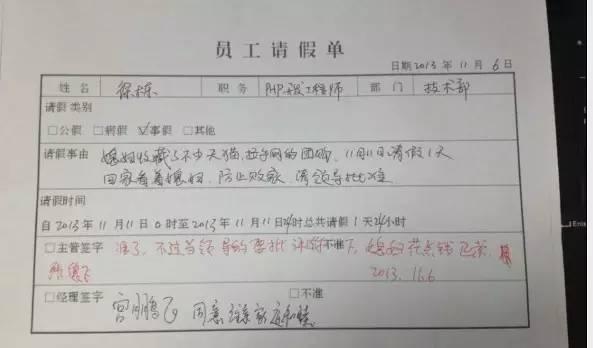 员工请假单
日期 2013 年 11 月 6 日
姓名 徐栋 职务 PHP开发工程师 部门 技术部
请假类别
□公假 □病假 ☑事假 □其他
请假事由 媳妇收藏了不少天猫,拉手网的团购,11月11日请假1天
回家看着媳妇,防止败家,请领导批准
请假时间
自 2013 年 11 月 11 日 0 时至 2013 年 11 月 11 日 24 时总共请假 1 天 24 小时
□主管签字 准了,不过当领导的要批评 不准 下,媳妇花点钱
2013.11.6
□经理签字 □不准
宫鹏飞 同意 家庭和睦